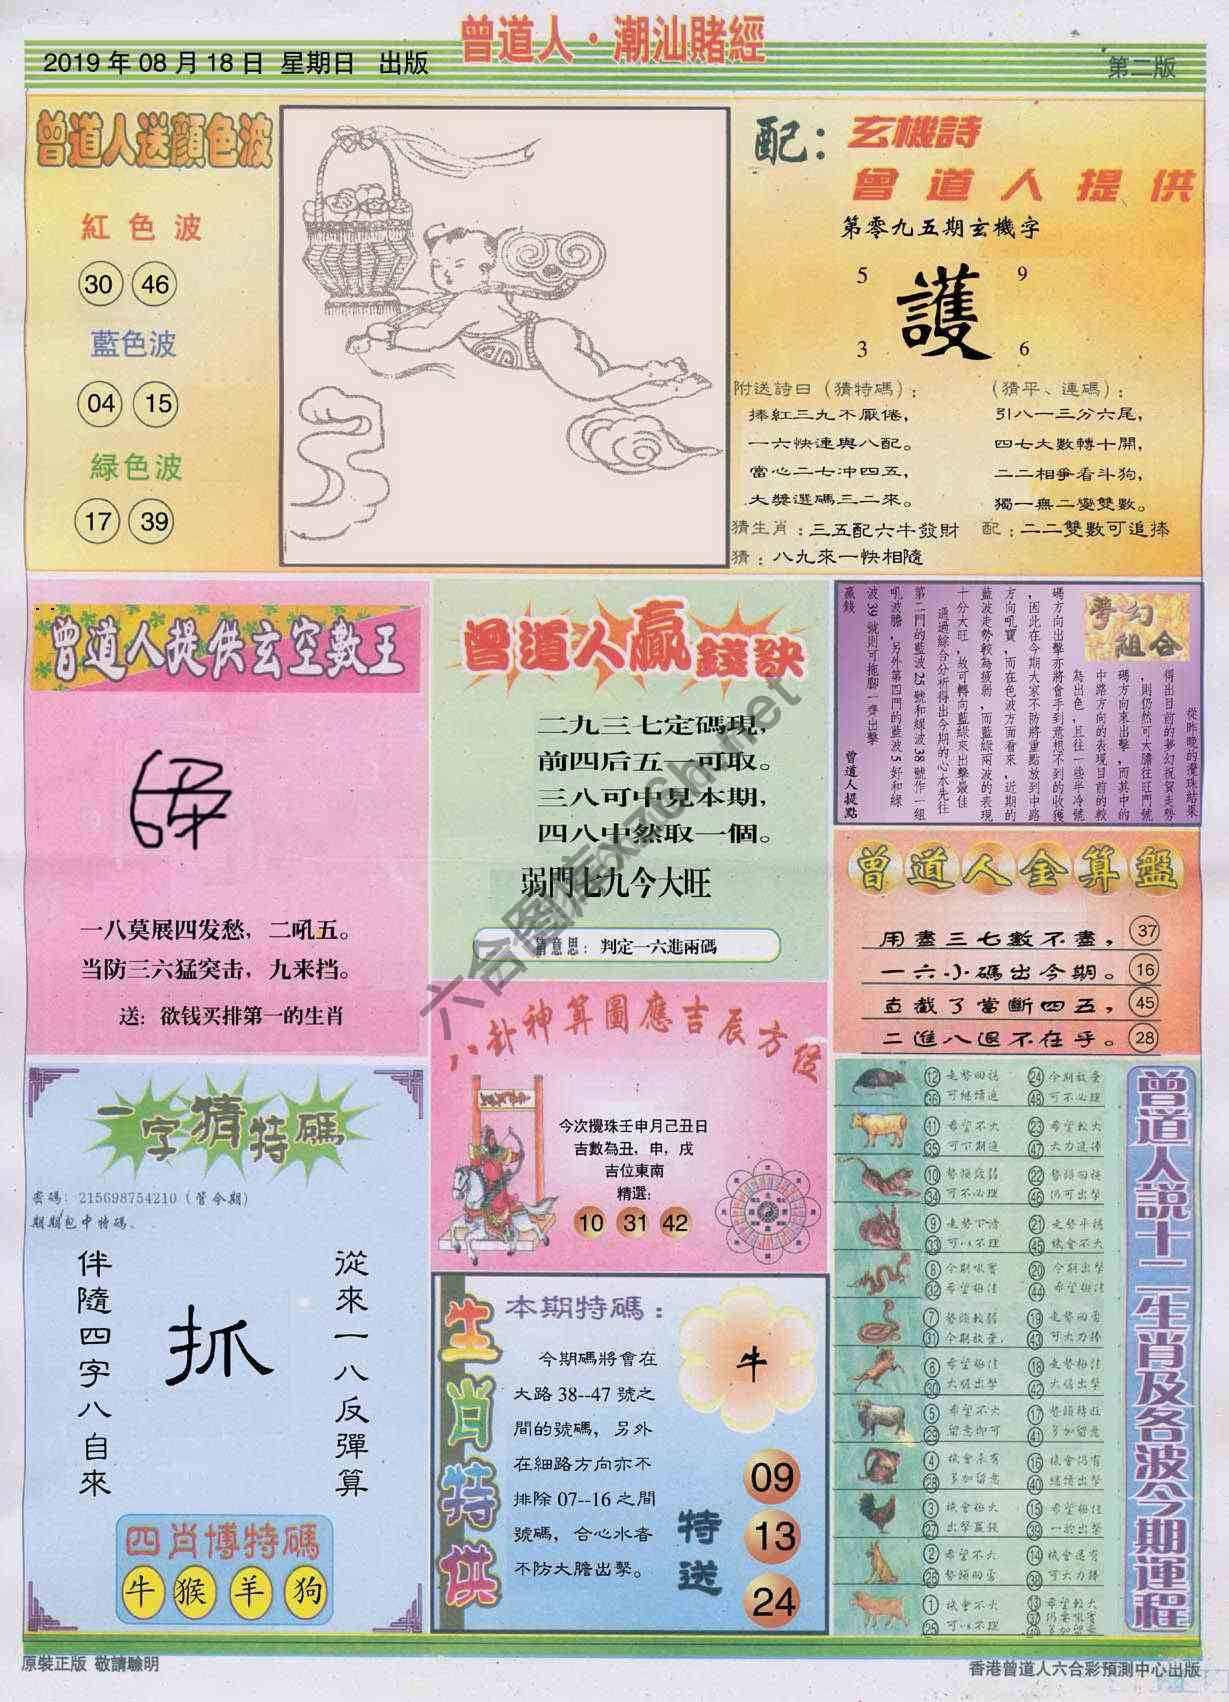 曾道人·潮汕賭經
2019年08月18日 星期日 出版
第二版
曾道人送顔色波
紅色波
30 46
藍色波
04 15
緑色波
17 39
配：
玄機詩
曾道人提供
第零九五期玄機字
5 9
護
3 6
附送詩曰（猜特碼）：
捧紅三九不厭倦，
一六快連與八配。
當心二七冲四五，
大獎選碼三二來。
（猜平、連碼）：
引八一三分六尾，
四七大數轉十開，
二二相爭看斗狗，
獨一無二變雙數。
猜生肖：三五配六牛發財
配：二二雙數可追捧
猜：八九來一快相隨
曾道人提供玄空數王
一八莫展四发愁，二吼五。
当防三六猛突击，九来挡。
送：欲钱买排第一的生肖
曾道人贏錢訣
二九三七定碼現，
前四后五一可取。
三八可中見本期，
四八中然取一個。
弱門七九今大旺
猜意思：判定一六進兩碼
夢幻組合
從昨晚的攪珠結果
得出目前的夢幻祝賀走勢
，則仍然可大膽往旺門號
碼方向來出擊，而其中的
中路方向的表現目前的較
為出色，且往一些半冷號
碼方向出擊亦將會手到意想不到的收獲
，因此在今期大家不防將重點放到中路
方向吼實，而在色波方面看來，近期的
藍波走勢較為疲弱，而藍綠兩波的表現
十分大旺，故可轉向藍綠來出擊最佳
通過綜合分析得出今期的心水先往
第二門的藍波25號和綠波38號作一組
吼波膽，另外第四門的藍波5好和綠
波39號則可拖腳一齊出擊
贏錢
曾道人提點
曾道人金算盤
用盡三七數不盡， 37
一六小碼出今期。 16
直截了當斷四五， 45
二進八退不在乎。 28
八卦神算圖應吉辰方位
今次攪珠壬申月己丑日
吉數為丑，申，戌
吉位東南
精選：
10 31 42
一字猜特碼
密碼：215698754210（管令期）
期期包中特碼。
從來一八反彈算
抓
伴隨四字八自來
四肖博特碼
牛 猴 羊 狗
生肖特供
本期特碼：
今期碼將會在
大路38--47號之
間的號碼，另外
在細路方向亦不
排除07--16之間
號碼，合心水者
不防大膽出擊。
牛
特送
09
13
24
曾道人說十二生肖及各波今期運程
12 走勢回穩 24 今期放棄
36 可繼續追 48 可不必理
11 希望不大 23 希望較大
35 可下期追 47 大力追捧
10 勢頭疲弱 22 勢頭回穩
34 可不必理 46 仍可出擊
9 走勢下滑 21 走勢平穩
33 可以不理 45 機會不大
8 今期吼實 20 今期出擊
32 希望極佳 44 希望極佳
7 勢頭較弱 19 走勢回雷
31 今期放棄 43 可大力捧
6 希望極佳 18 走勢極佳
30 大膽出擊 42 大膽出擊
5 希望不大 17 勢頭特旺
29 留意即可 41 多加留意
4 機會未有 16 機會仍有
28 多加留意 40 繼續出擊
3 機會極大 15 希望極佳
27 出擊贏錢 39 一於出擊
2 希望不大 14 機會還有
26 勢頭回雷 38 可大力捧
1 機會不大 13 希望較大
25 可以不理 37 仍要吼實
49 多加留意
原裝正版 敬請驗明
香港曾道人六合彩預測中心出版
六合圖庫.xzGh.net